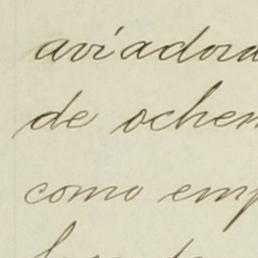 aviadora
de ochen
como emp